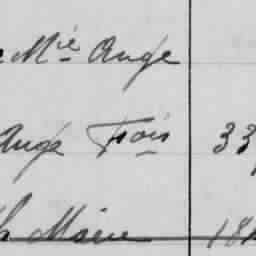 Mie Ange
Ange Frois 33
Marie 18